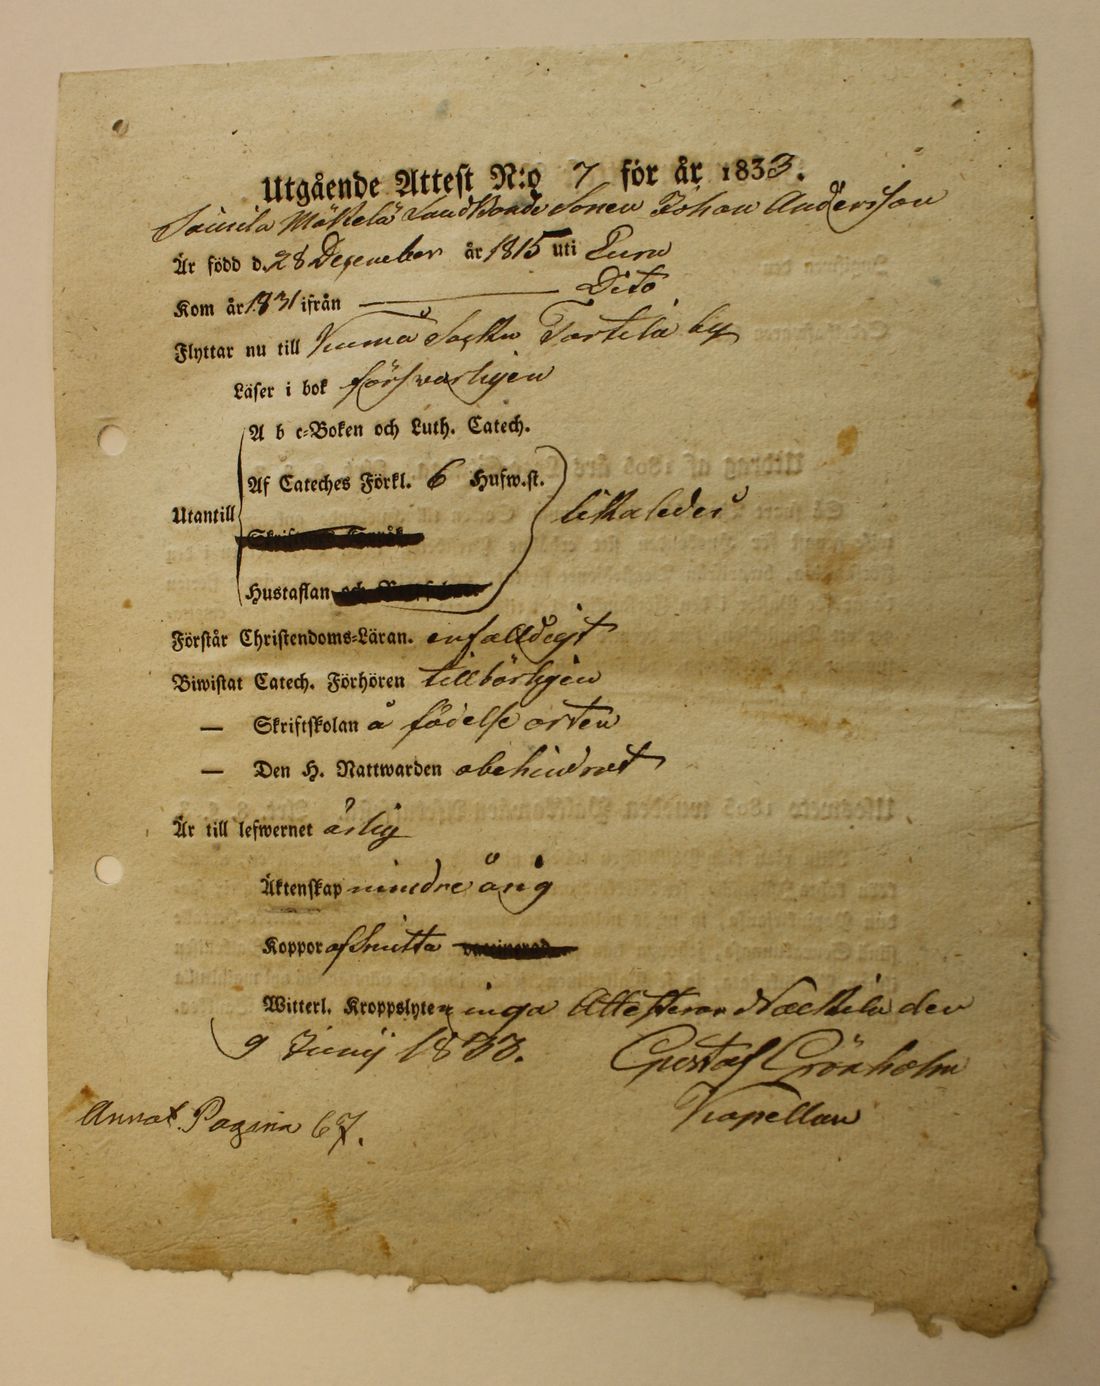 Utgående Attest N:o 7 för år 1833.
Säkylä Mäkelä Landbonde Sonen Johan Andersson
Är född d. 28 December år 1815 uti Eura
Kom år 1831 ifrån — Dito
Flyttar nu till Socken by
Läser i bok försvarligen
A b c-Boken och Luth. Catech.
Af Cateches Förkl. 6 Hufw.st.
Utantill likaledes
Hustaflan
Förstår Christendoms-Läran. enfalldigt
Biwistat Catech. Förhören tillbörligen
— Skriftskolan å födelse orten
— Den H. Nattwarden obehindrat
Är till lefwernet ärlig
Äktenskap mindre årig
Koppor af Smitta
Witterl. Kroppslyten inga Attesterar den
9 Junij 1833. Gustaf Grönholm
Kapellan
Annot. Pagina 67.